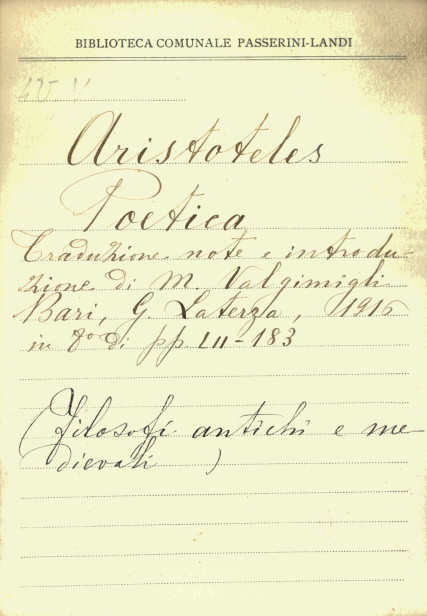 BIBLIOTECA COMUNALE PASSERINI-LANDI
Aristoteles
Poetica
Traduzione note e introdu-
zione di M. Valgimigli
Bari, G. Laterza, 1916
in 8° di pp. LII-183
(Filosofi antichi e me-
dievali)